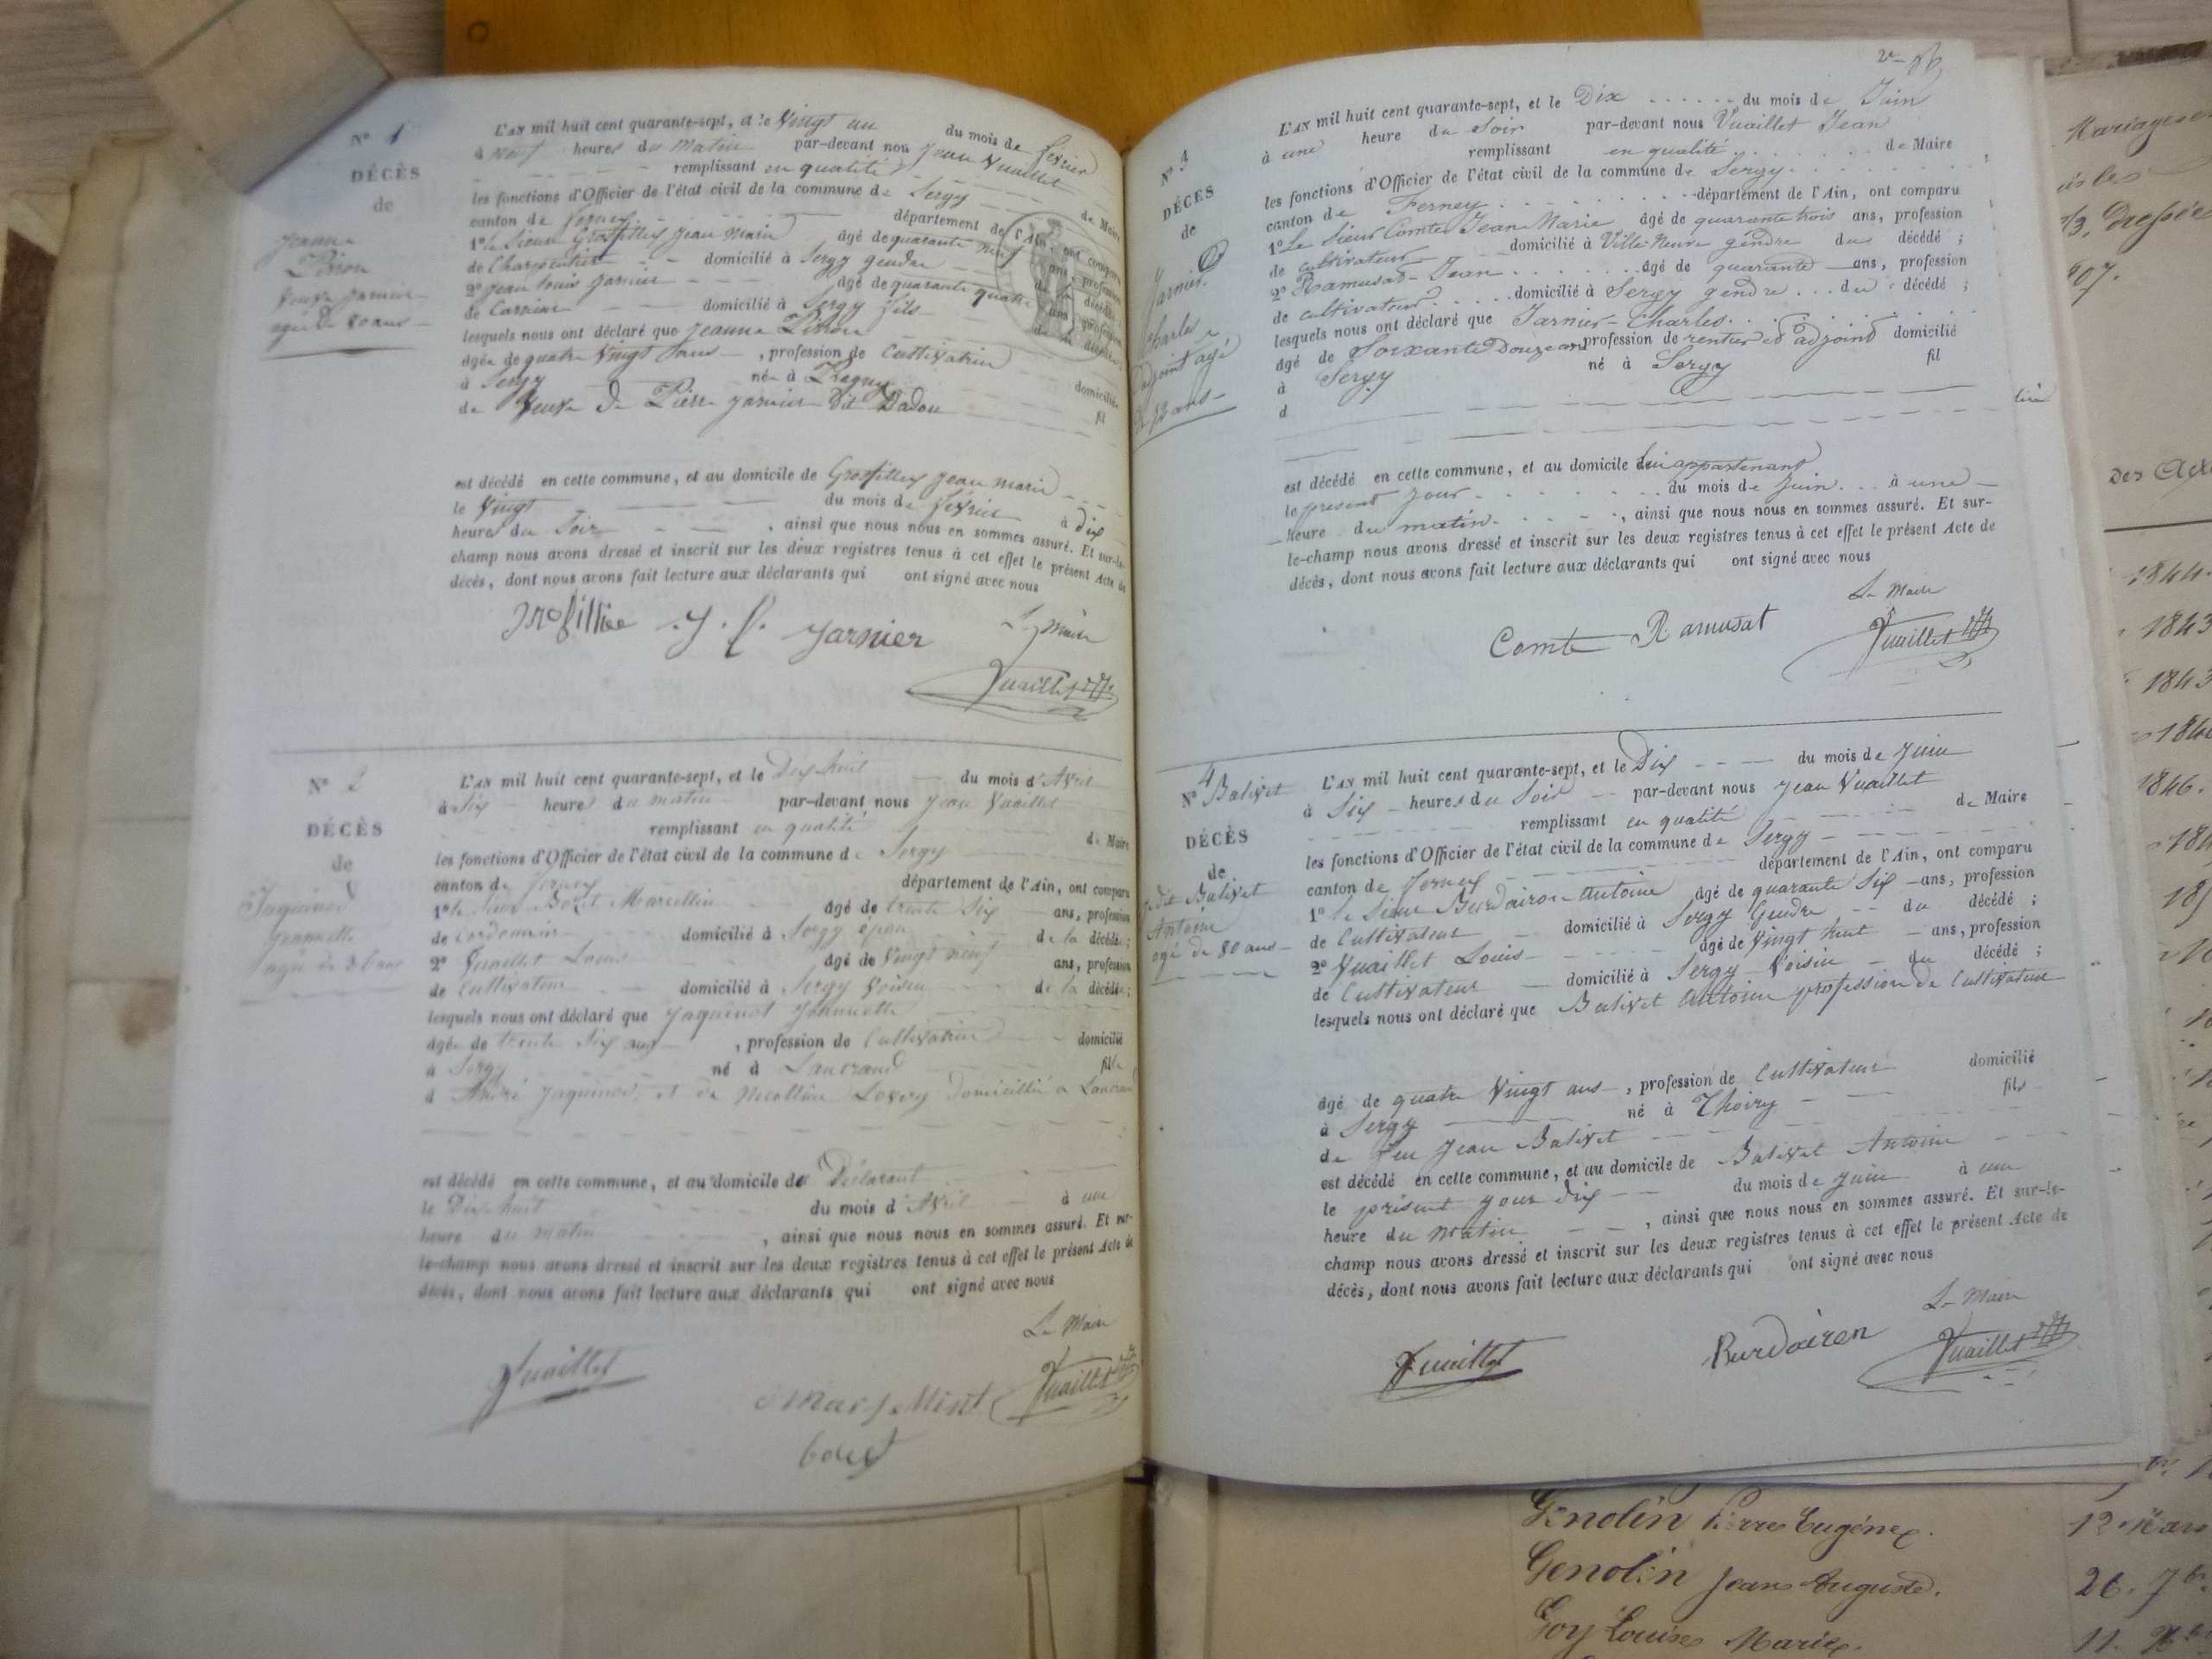 N° 1
DÉCÈS
de
Jeanne
Pirron
Veuve Jarnier
agée de 80 ans
L'AN mil huit cent quarante-sept, et le Vingt un du mois de Fevrier
à neuf heures du matin par-devant nous Jean Vuaillet
remplissant en qualité de Maire
les fonctions d'Officier de l'état civil de la commune de Sergy
canton de Ferney département de l'Ain, ont comparu
1° le Sieur Grosfilley Jean Marie âgé de quarante neuf ans, profession
de Charpentier domicilié à Sergy gendre de la décédée
2° Jean Louis Jarnier âgé de quarante quatre ans, profession
de domicilié à Sergy fils de la décédée
lesquels nous ont déclaré que Jeanne Pirron
âgée de quatre Vingt ans, profession de Cultivatrice domiciliée
à Sergy née à fil
de Veuve de Pierre Jarnier dit Dadou
est décédé en cette commune, et au domicile de Grosfilley Jean Marie
le Vingt du mois de Févrie à dix
heures du Soir, ainsi que nous nous en sommes assuré. Et sur-le-
champ nous avons dressé et inscrit sur les deux registres tenus à cet effet le présent Acte de
décès, dont nous avons fait lecture aux déclarants qui ont signé avec nous
J. L. Jarnier Le Maire
Vuaillet
N° 2
DÉCÈS
de
Jaquinod
Jeannette
agée de 36 ans
L'AN mil huit cent quarante-sept, et le Dix huit du mois d'Avril
à Six heures du matin par-devant nous Jean Vuaillet
remplissant en qualité de Maire
les fonctions d'Officier de l'état civil de la commune de Sergy
canton de Ferney département de l'Ain, ont comparu
1° le Sieur Marcellin âgé de trente Six ans, profession
de Cordonnier domicilié à Sergy époux de la décédée;
2° Vuaillet Louis âgé de Vingt neuf ans, profession
de Cultivateur domicilié à Sergy Voisin de la décédée;
lesquels nous ont déclaré que Jaquinot Jeannette
âgée de trente Six ans, profession de Cultivatrice domicilié
à Sergy né à Lancrand fille
d André Jaquinod et de domicillié a Lancrand
est décédé en cette commune, et au domicile du Déclarant
le Dix huit du mois d'Avril à une
heure du matin, ainsi que nous nous en sommes assuré. Et sur-
le-champ nous avons dressé et inscrit sur les deux registres tenus à cet effet le présent Acte de
décès, dont nous avons fait lecture aux déclarants qui ont signé avec nous
Le Maire
Vuaillet Vuaillet
N° 3
DÉCÈS
de
Jarnier
Charles
adjoint agé
de 72 ans
L'AN mil huit cent quarante-sept, et le Dix du mois de Juin
à une heure du Soir par-devant nous Vuaillet Jean
remplissant en qualité de Maire
les fonctions d'Officier de l'état civil de la commune de Sergy
canton de Ferney département de l'Ain, ont comparu
1° Le Sieur Comte Jean Marie âgé de quarante trois ans, profession
de cultivateur domicilié à Ville-Neuve gendre du décédé;
2° Ramusat Jean âgé de quarante ans, profession
de cultivateur domicilié à Sergy gendre du décédé;
lesquels nous ont déclaré que Jarnier Charles
âgé de Soixante Douze ans profession de rentier et adjoint domicilié
à Sergy né à Sergy fil
d
est décédé en cette commune, et au domicile lui appartenant
le present jour du mois de Juin à une
heure du matin, ainsi que nous nous en sommes assuré. Et sur-
le-champ nous avons dressé et inscrit sur les deux registres tenus à cet effet le présent Acte de
décès, dont nous avons fait lecture aux déclarants qui ont signé avec nous
Le Maire
Comte Ramusat Vuaillet
N° 4 Balivet
DÉCÈS
de
dit Balivet
Antoine
agé de 80 ans
L'AN mil huit cent quarante-sept, et le Dix du mois de Juin
à Six heures du Soir par-devant nous Jean Vuaillet
remplissant en qualité de Maire
les fonctions d'Officier de l'état civil de la commune de Sergy
canton de Ferney département de l'Ain, ont comparu
1° le Sieur Burdairon Antoine âgé de quarante Six ans, profession
de Cultivateur domicilié à Sergy Gendre du décédé;
2° Vuaillet Louis âgé de Vingt huit ans, profession
de Cultivateur domicilié à Sergy Voisin du décédé;
lesquels nous ont déclaré que Balivet Antoine profession de Cultivateur
âgé de quatre Vingt ans, profession de Cultivateur domicilié
à Sergy né à Thoiry fils
de feu Jean Balivet
est décédé en cette commune, et au domicile de Balivet Antoine
le présent jour dix du mois de Juin à une
heure du matin, ainsi que nous nous en sommes assuré. Et sur-le-
champ nous avons dressé et inscrit sur les deux registres tenus à cet effet le présent Acte de
décès, dont nous avons fait lecture aux déclarants qui ont signé avec nous
Le Maire
Vuaillet Burdairon Vuaillet
Mariages
Dressée
Des
1844
1843
1843
1846.
Genolin Pierre Eugène.
Genolin Jean Auguste.
26. 7br
Goy Louise Marie.
11.